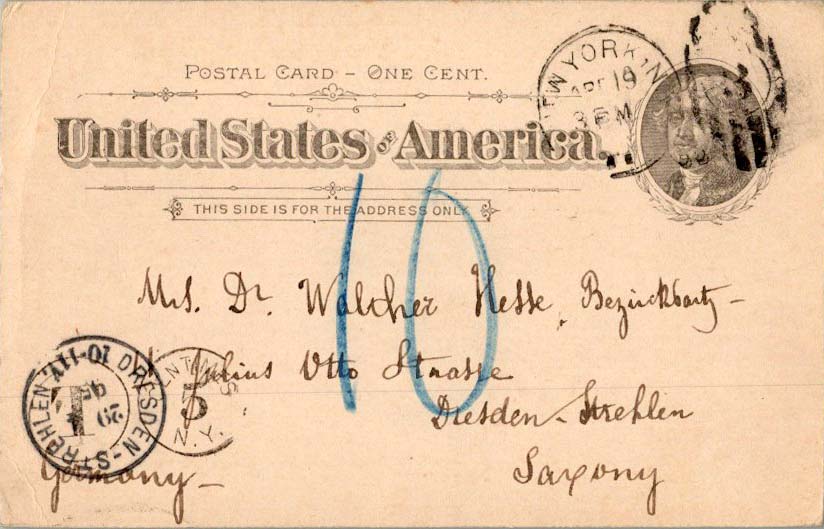 POSTAL CARD – ONE CENT.
United States OF America.
THIS SIDE IS FOR THE ADDRESS ONLY.
NEW YORK, N
APR 19
3 PM
10
Mrs. Dr. Walther Hesse, Bezirksarzt –
Julius Otto Strasse
Dresden – Strehlen
Saxony
Germany –
DRESDEN-STREHLEN
29
95
CENTIMES
5
N.Y.